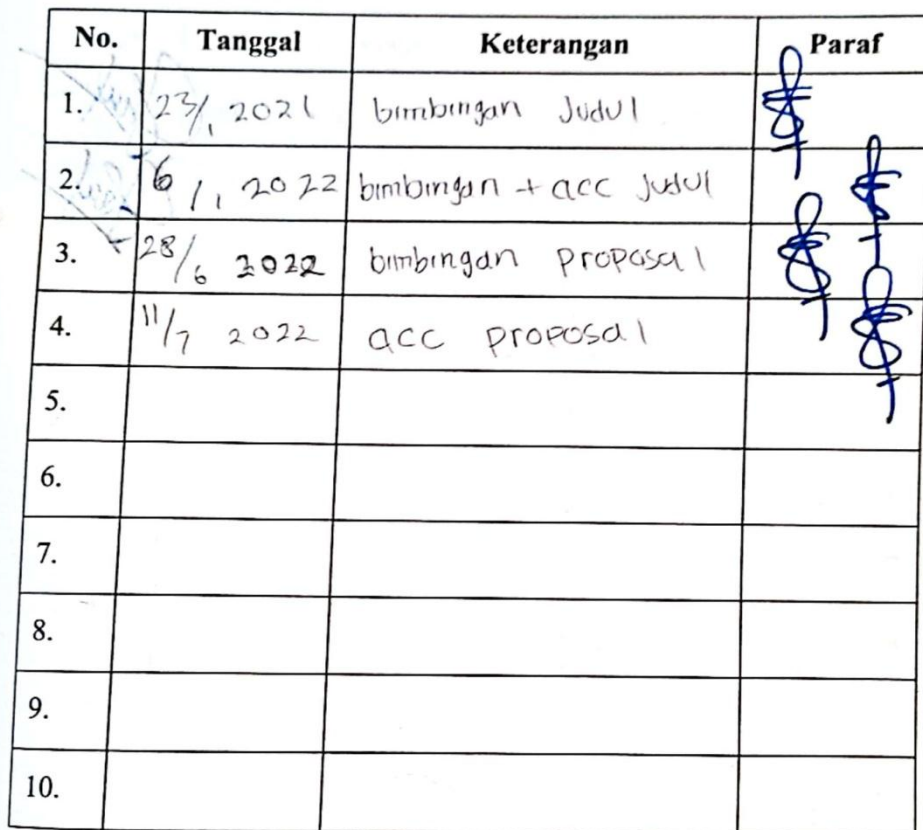 No. Tanggal Keterangan Paraf
1. 23/1 2021 bimbingan Judul
2. 6/1 2022 bimbingan + acc Judul
3. 28/6 2022 bimbingan proposal
4. 11/7 2022 acc proposal
5.
6.
7.
8.
9.
10.